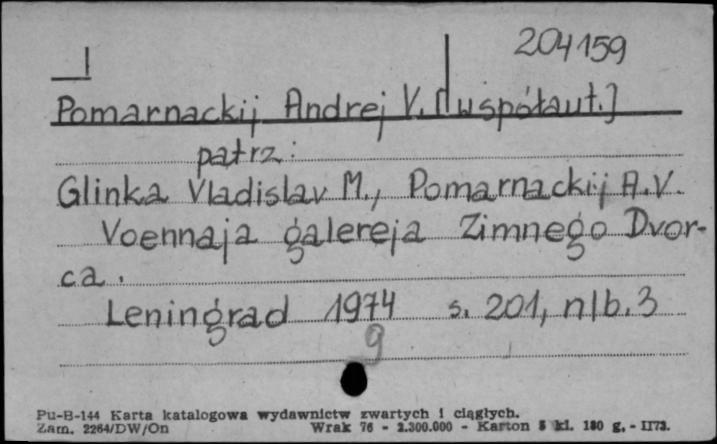 204159
I
Pomarnackij Andrej V. [współaut.]
patrz:
Glinka Vladislav M., Pomarnackij A.V.
Voennaja galereja Zimnego Dvor-
ca.
Leningrad 1974 s. 201, nlb. 3
9
Pu-B-144 Karta katalogowa wydawnictw zwartych i ciągłych.
Zam. 2264/DW/On Wrak 76 - 2.300.000 - Karton 5 kl. 180 g. - II73.